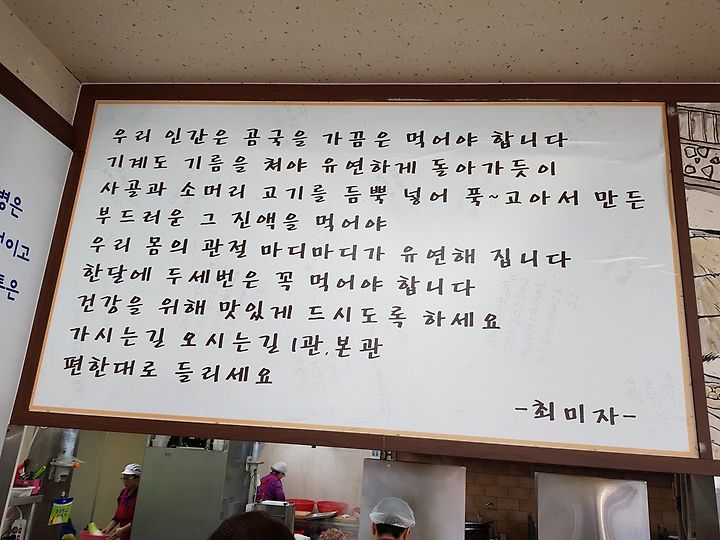 우리 인간은 곰국을 가끔은 먹어야 합니다
기계도 기름을 쳐야 유연하게 돌아가듯이
사골과 소머리 고기를 듬뿍 넣어 푹~고아서 만든
부드러운 그 진액을 먹어야
우리 몸의 관절 마디마디가 유연해 집니다
한달에 두세번은 꼭 먹어야 합니다
건강을 위해 맛있게 드시도록 하세요
가시는길 오시는길 1관,본관
편한대로 들리세요
-최미자-